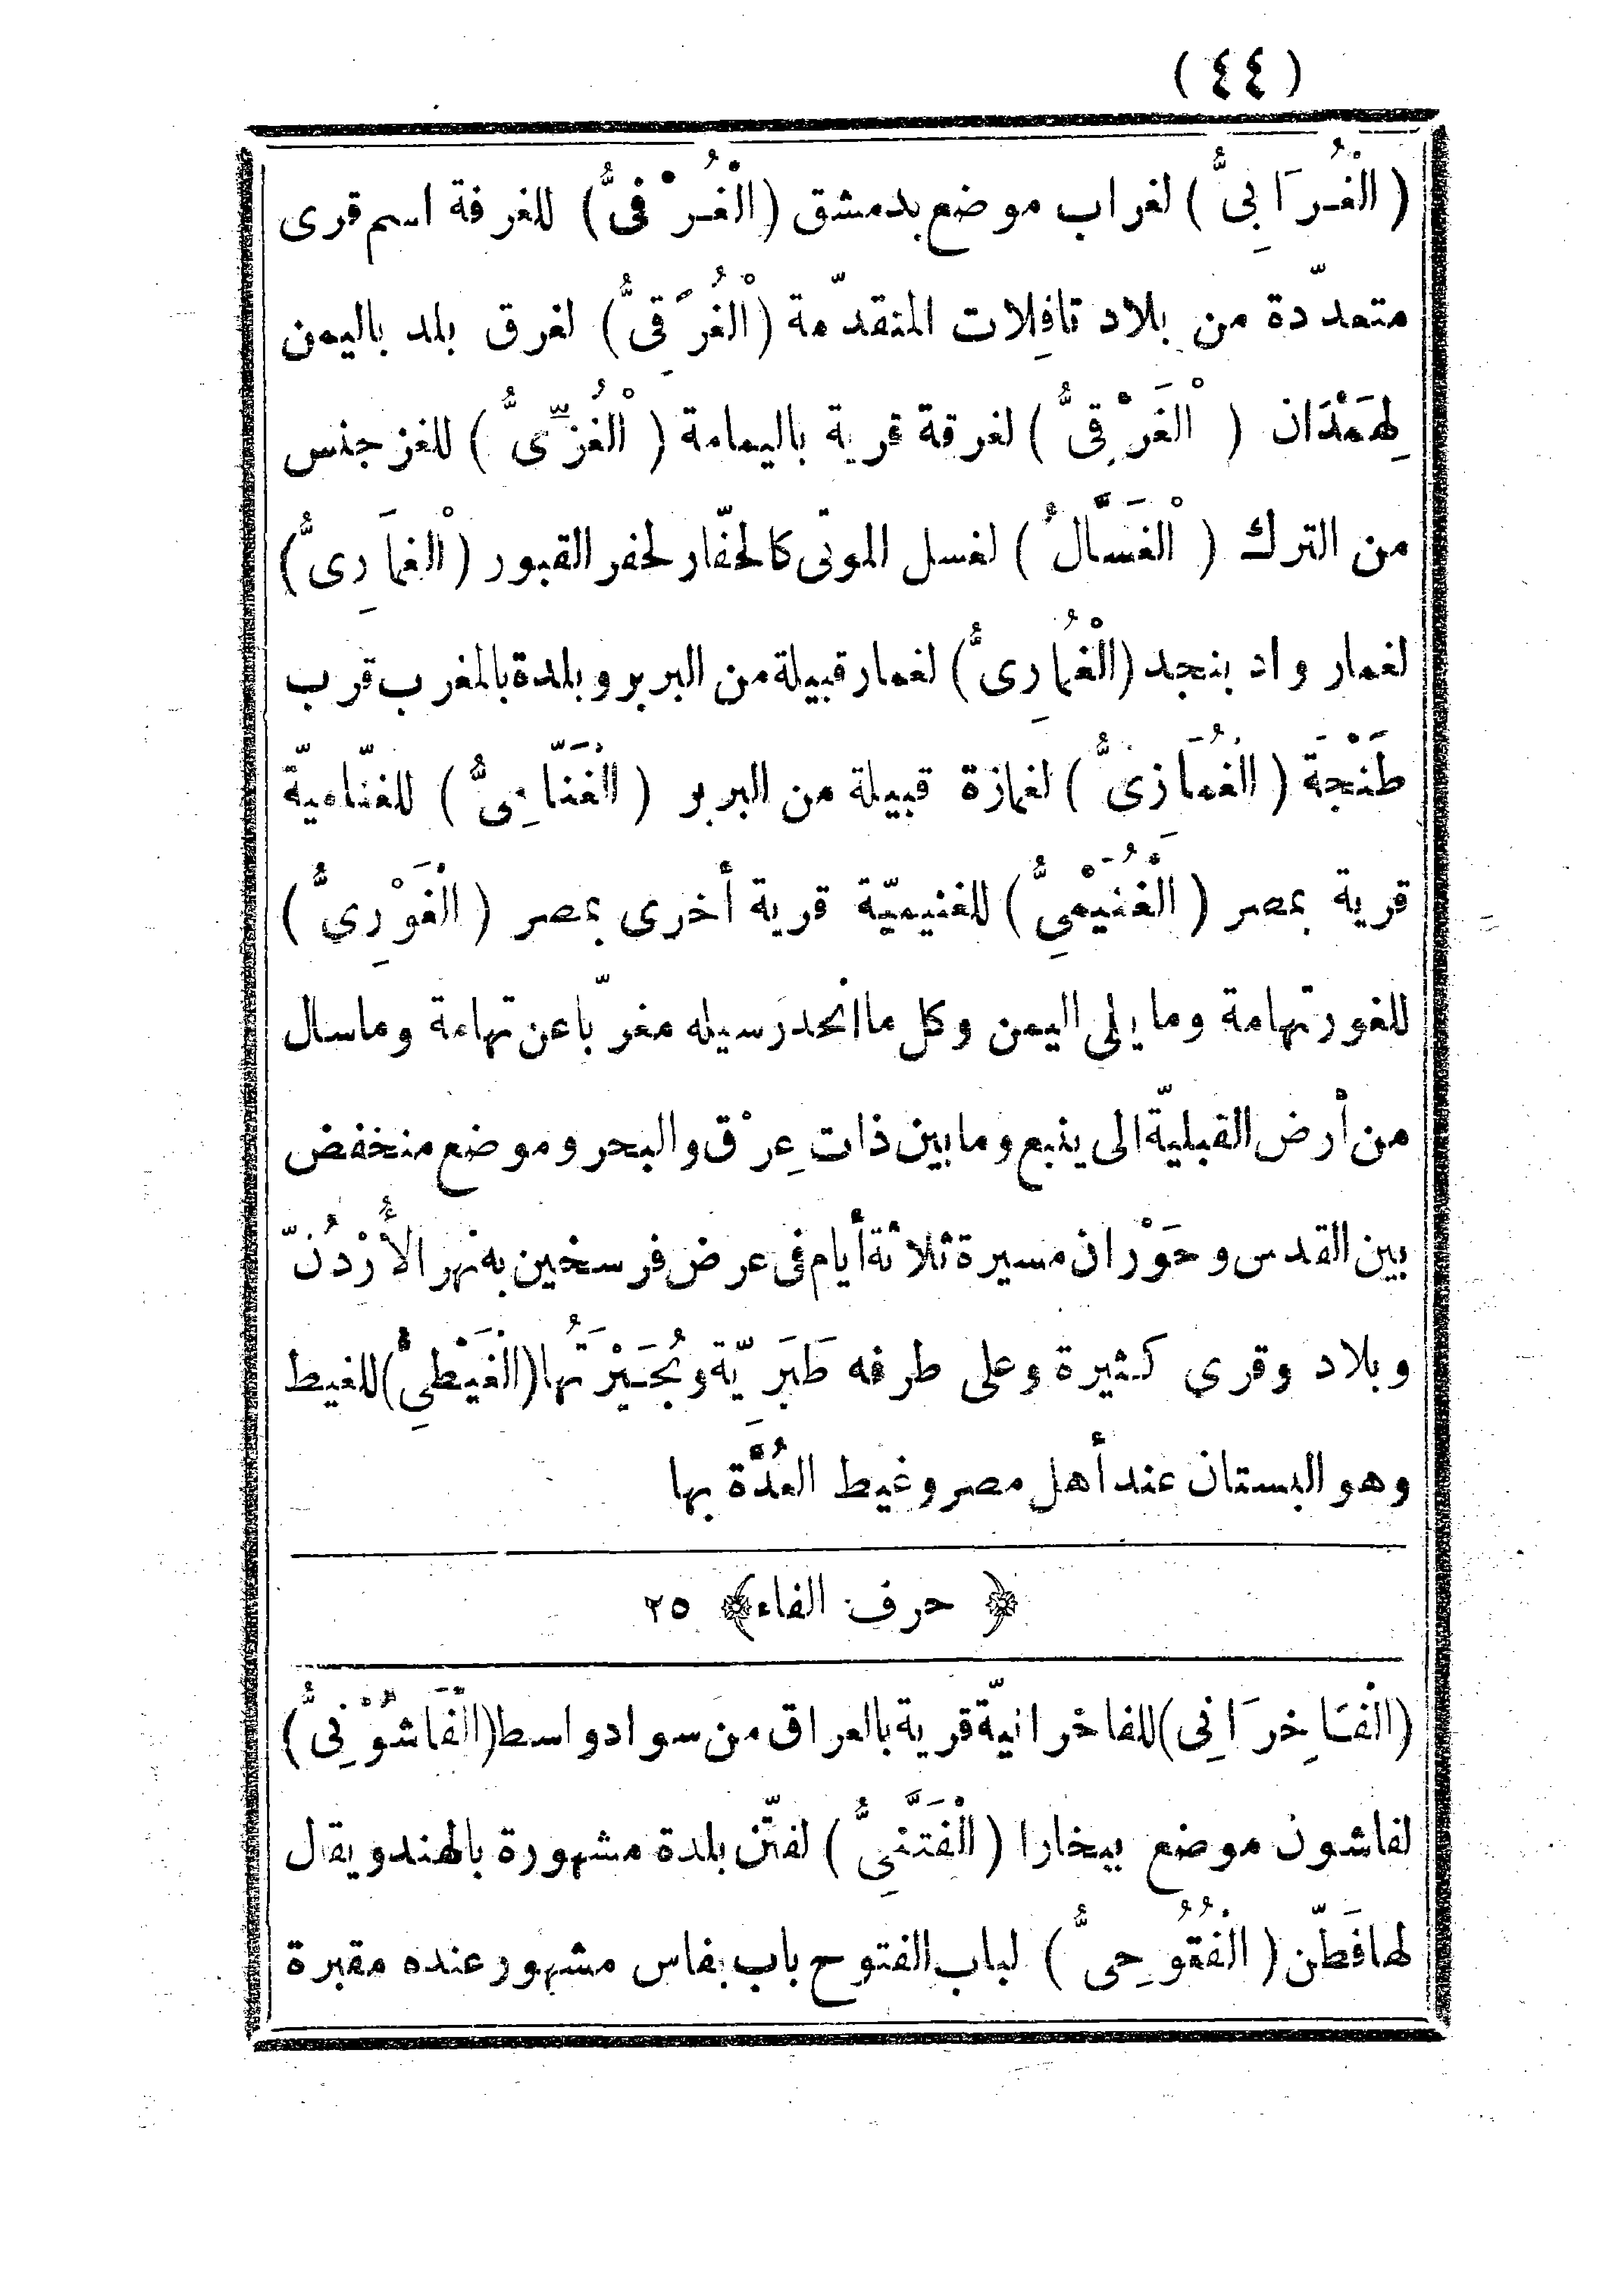 (٤٤)
(الْغُرَابِىُّ) لغراب موضع بدمشق (الْغُرْفِىُّ) للغرفة اسم قرى
متعدّدة من بلاد تافِلات المتقدّمة (الْغُرَقِىُّ) لغرق بلد باليمن
لِهَمْدَان (الْغَرْقِىُّ) لغرقة قرية باليمامة (الْغُزِّىُّ) للغز جنس
من الترك (الْغَسَّالُ) لغسل الموتى كالحفّار لحفر القبور (الْغمَارِىُّ)
لغمار واد بنجد (الْغُمارِىُّ) لغمار قبيلة من البربر وبلدة بالمغرب قرب
طَنْجَة (الْغُمَازِىُّ) لغمازة قبيلة من البربر (الْغَنَّامِىُّ) للغنّامية
قرية بمصر (الْغُنَيْمِىُّ) للغنيميّة قرية أخرى بمصر (الْغَوْرِيُّ)
للغور تهامة وما يلى اليمن وكل ما انحدر سيله مغرّبا عن تهامة وما سال
من أرض القبليّة الى ينبع وما بين ذات عِرْق والبحر وموضع منخفض
بين القدس وحَوْران مسيرة ثلاثة أيام فى عرض فرسخين به نهر الأُرْدُنّ
وبلاد وقري كثيرة وعلى طرفه طَبَرِيّة وبُحَيْرَتُها (الْغَيْطِىُّ) للغيط
وهو البستان عند أهل مصر وغيط العُدَّة بها
﴿حرف الفاء﴾ ٢٥
(الْفَاخِرَانِى) للفاخرانيّة قرية بالعراق من سواد واسط (الْفَاشُوْنِىُّ)
لفاشون موضع ببخارا (الْفَتَّنِىُّ) لفتّن بلدة مشهورة بالهند ويقال
لها فَطّن (الْفُتُوحِىُّ) لباب الفتوح باب بفاس مشهور عنده مقبرة